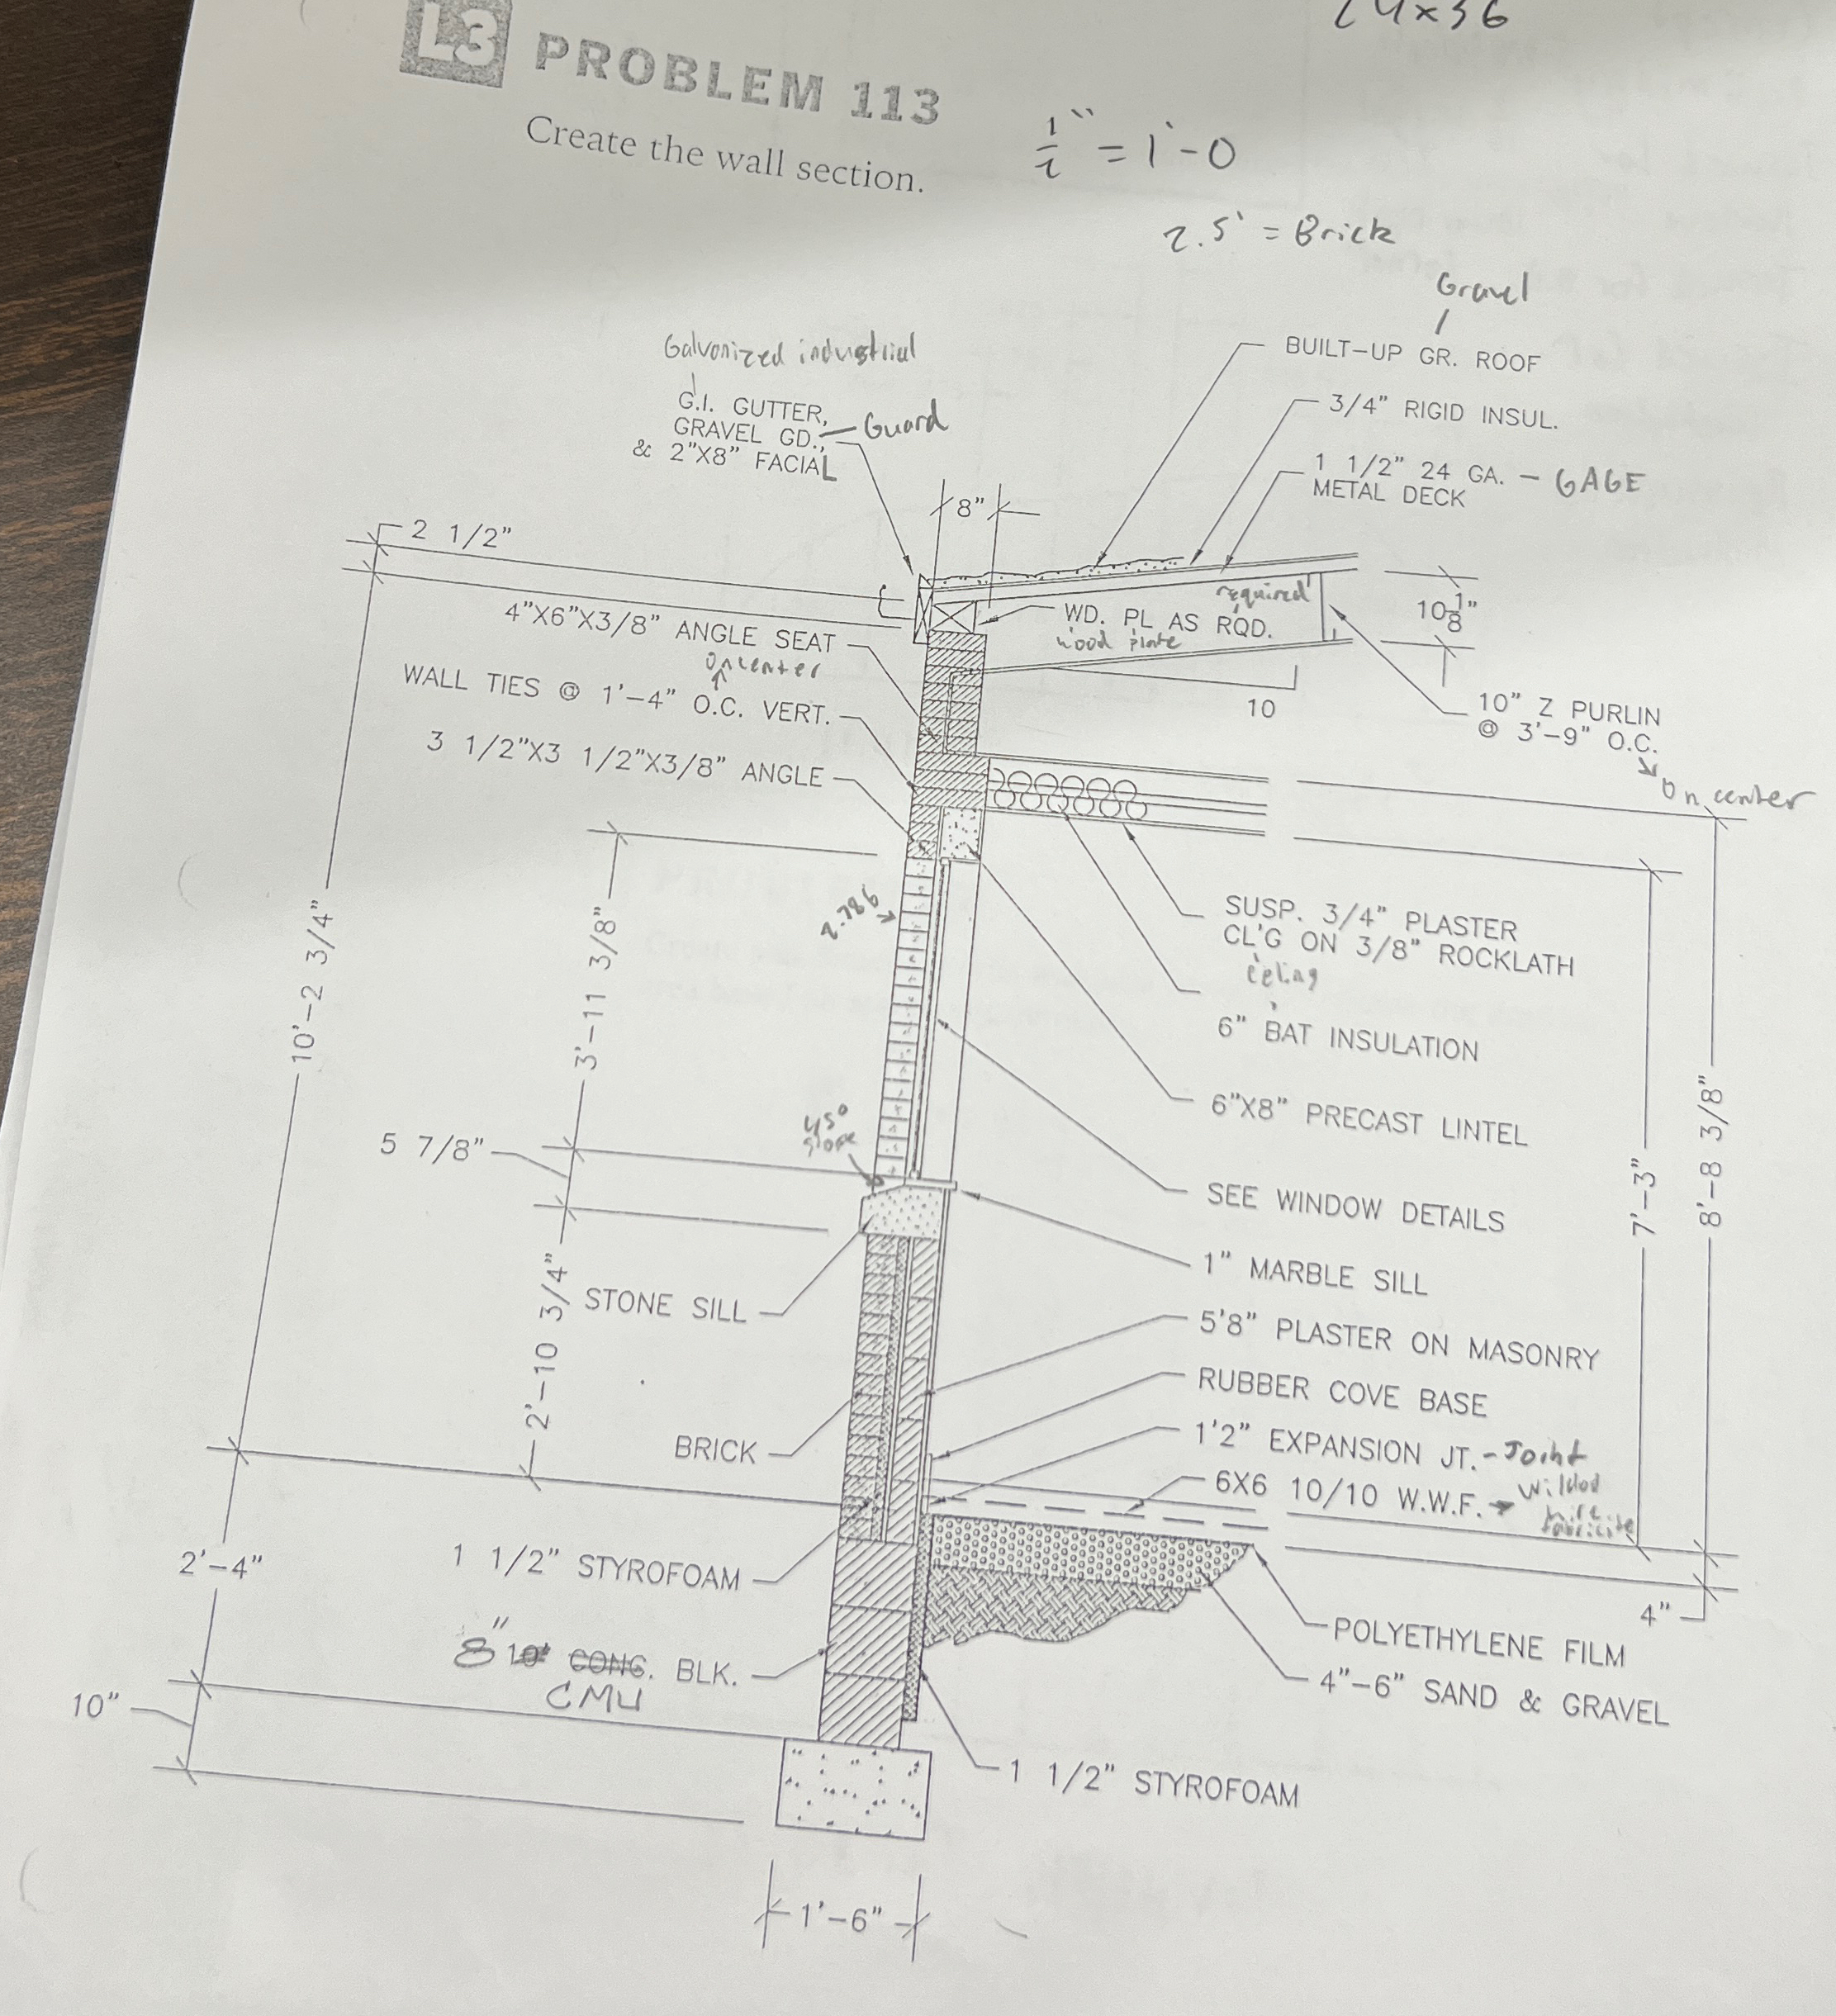 24x36
L3 PROBLEM 113
Create the wall section.
1/2" = 1'-0
2.5' = Brick
Gravel
BUILT-UP GR. ROOF
3/4" RIGID INSUL.
1 1/2" 24 GA. - GAGE
METAL DECK
Galvonized industrial
G.I. GUTTER,
GRAVEL GD., Guard
& 2"X8" FACIAL
8"
2 1/2"
4"X6"X3/8" ANGLE SEAT
on center
WALL TIES @ 1'-4" O.C. VERT.
3 1/2"X3 1/2"X3/8" ANGLE
required
WD. PL AS RQD.
wood plate
10 1/8"
10
10" Z PURLIN
@ 3'-9" O.C.
on center
10'-2 3/4"
3'-11 3/8"
2.786
SUSP. 3/4" PLASTER
CL'G ON 3/8" ROCKLATH
eiling
6" BAT INSULATION
6"X8" PRECAST LINTEL
45°
slope
5 7/8"
SEE WINDOW DETAILS
7'-3"
8'-8 3/8"
1" MARBLE SILL
STONE SILL
2'-10 3/4"
5'8" PLASTER ON MASONRY
RUBBER COVE BASE
BRICK
1'2" EXPANSION JT. - Joint
6X6 10/10 W.W.F.
1 1/2" STYROFOAM
2'-4"
4"
POLYETHYLENE FILM
4"-6" SAND & GRAVEL
8" 10" CONC. BLK.
CMU
10"
1 1/2" STYROFOAM
1'-6"